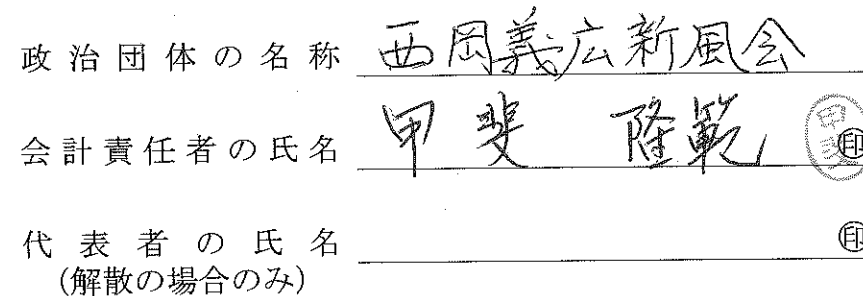 政治団体の名称 西岡義広新風会
会計責任者の氏名 甲斐 隆範 ㊞ 甲斐
代表者の氏名 ㊞
(解散の場合のみ)